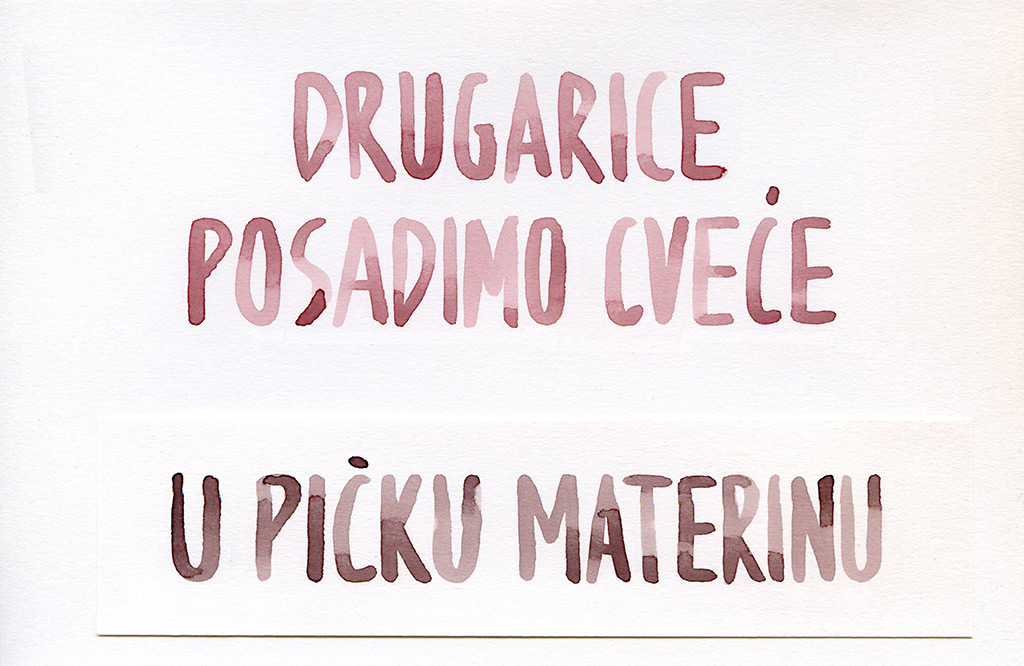 DRUGARICE
POSADIMO CVEĆE
U PIČKU MATERINU